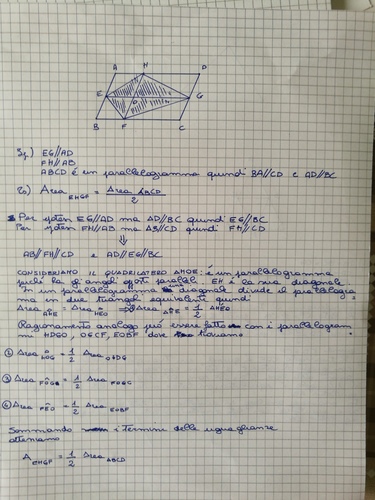 A H D
E O G
B F C
Ip) EG//AD
FH//AB
ABCD è un parallelogramma quindi BA//CD e AD//BC
Ts) Area EHGF = Area ABCD / 2
Per ipotesi EG//AD ma AD//BC quindi EG//BC
Per ipotesi FH//AB ma AB//CD quindi FH//CD
⇓
AB//FH//CD e AD//EG//BC
CONSIDERIAMO IL QUADRILATERO AHOE: è un parallelogramma
perché ha gli angoli opposti paralleli EH è la sua diagonale
In un parallelogramma una diagonale divide il parallelogra
mma in due triangoli equivalenti quindi
Area AĤE = Area HÊO ⇒ Area = 1/2 AHEO
Ragionamento analogo può essere fatto con i parallelogram
mi HDGO, OGCF, EOBF dove troviamo
② Area HOG = 1/2 Area OHDG
③ Area FOG = 1/2 Area FOGC
④ Area FEO = 1/2 Area EOBF
Sommando i termini delle uguaglianze
otteniamo
A EHGF = 1/2 Area ABCD